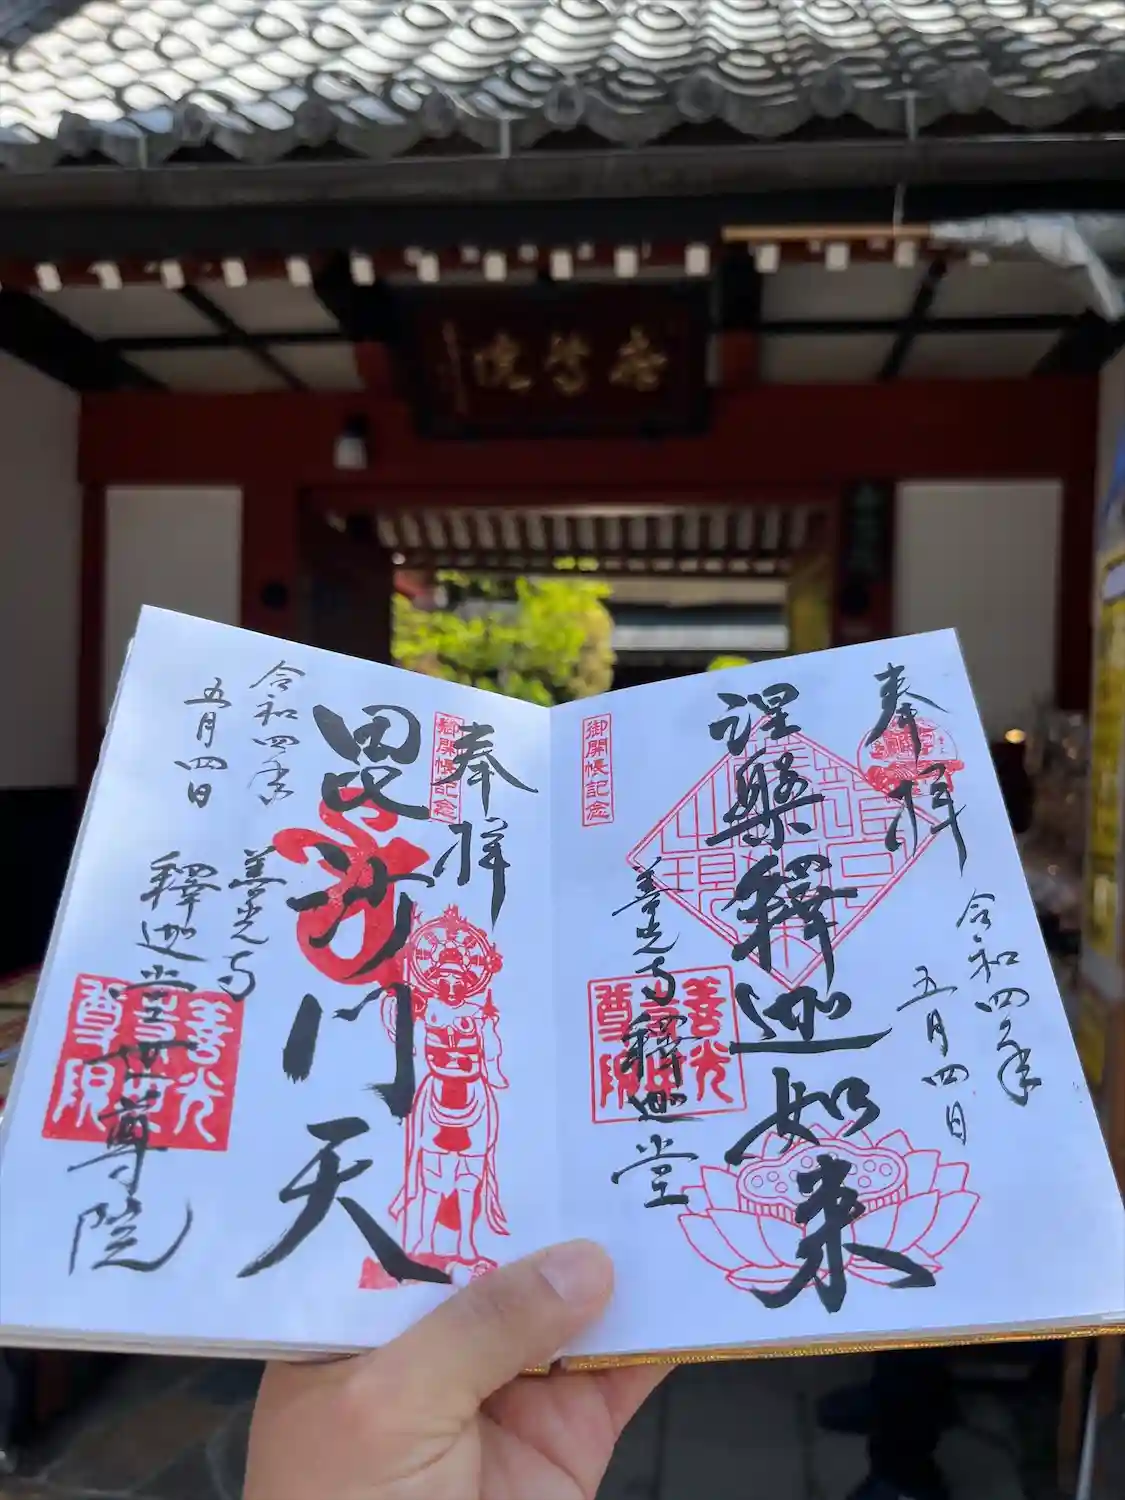 奉拝
涅槃釋迦如来
令和四年
五月四日
善光寺釋迦堂
御開帳記念
善光
尊院
奉拝
御開帳記念
毘沙門天
令和四年
五月四日
善光寺
釋迦堂世尊院
善光
尊院